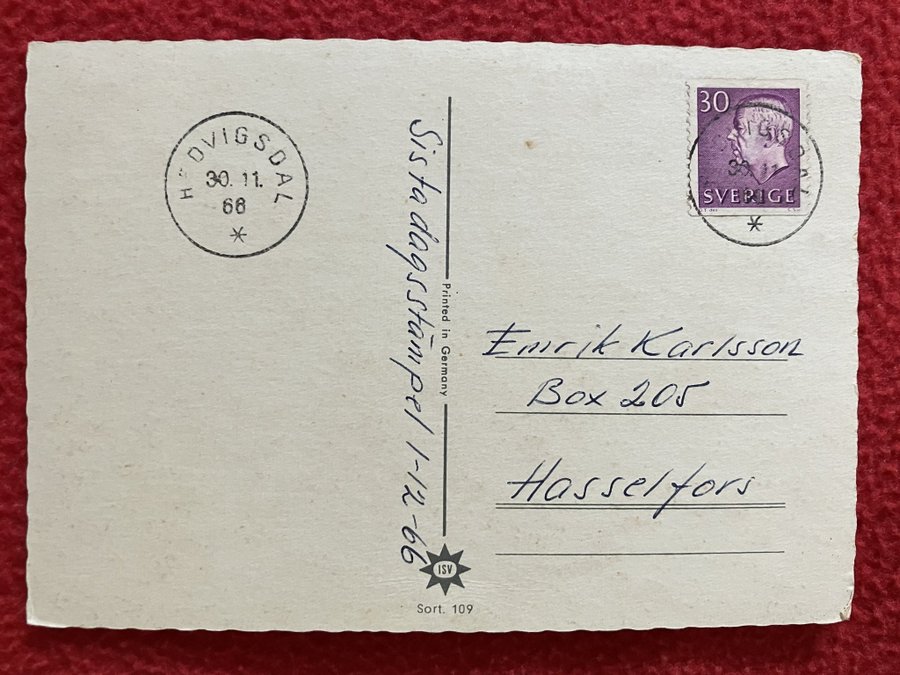 HEDVIGSDAL
30.11.
66
*
Sista dagsstämpel 1-12-66
Printed in Germany
ISV
Sort. 109
30
SVERIGE
30.11.
*
Emrik Karlsson
Box 205
Hasselfors